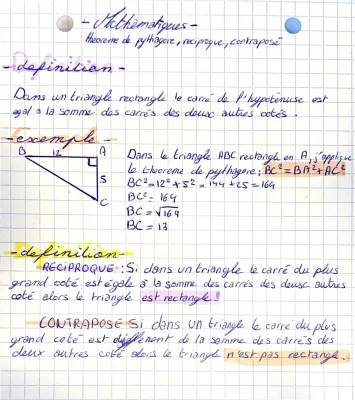 - Mathématiques -
théorème de pythagore, réciproque, contraposé
- définition -
Dans un triangle rectangle le carré de l'hypoténuse est
égal à la somme des carrés des deux autres cotés.
- exemple -
B 12 A
5
C
Dans le triangle ABC rectangle en A, j'applique
le théorème de pythagore: BC² = BA² + AC²
BC² = 12² + 5² = 144 + 25 = 169
BC² = 169
BC = √169
BC = 13
- définition -
RECIPROQUE: Si dans un triangle le carré du plus
grand coté est égale à la somme des carrés des deux autres
coté alors le triangle est rectangle!
CONTRAPOSE Si dans un triangle le carré du plus
grand coté est différent de la somme des carrés des
deux autres coté alors le triangle n'est pas rectangle.